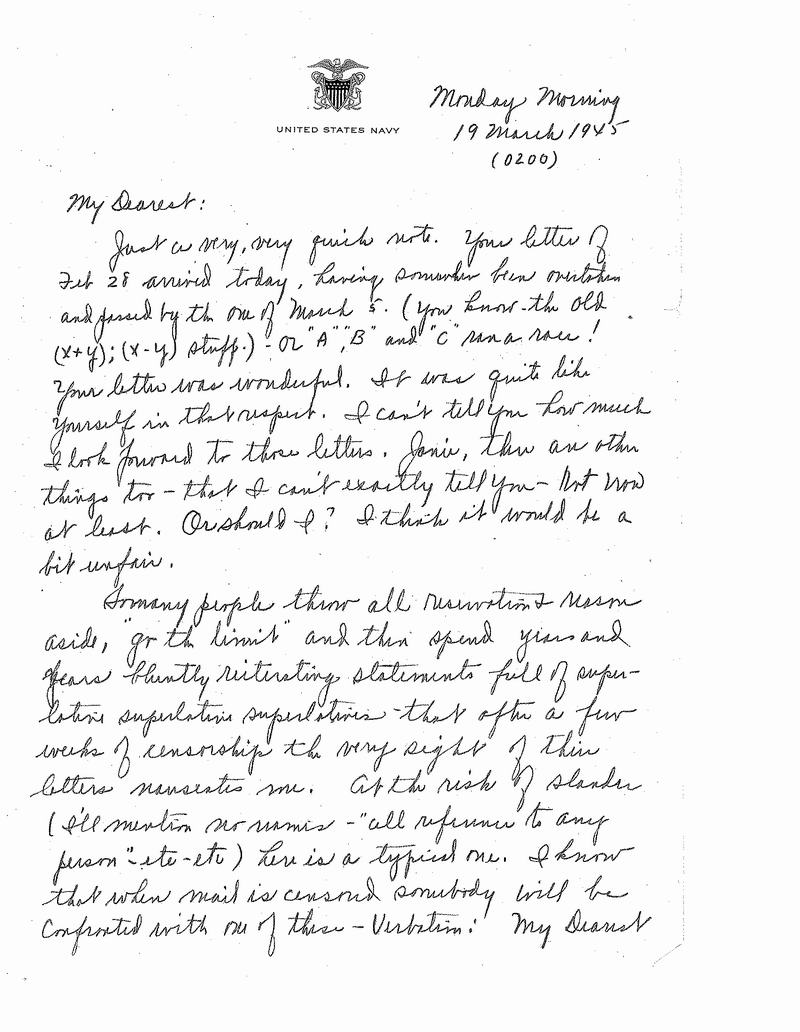 UNITED STATES NAVY
Monday Morning
19 March 1945
(0200)
My Dearest:
Just a very, very quick note. Your letter of
Feb 28 arrived today, having somehow been overtaken
and passed by the one of March 5. (You know the old
(x+y); (x-y) stuff.) - Or "A", "B" and "C" ran a race!
Your letter was wonderful. It was quite like
yourself in that respect. I can't tell you how much
I look forward to those letters. Janie, there are other
things too - that I can't exactly tell you - Not now
at least. Or should I? I think it would be a
bit unfair.
So many people throw all reservation & reason
aside, "go the limit" and then spend years and
years bluntly reiterating statements full of super-
lative superlative superlatives - that after a few
weeks of censorship the very sight of their
letters nauseates me. At the risk of slander
(I'll mention no names - "all reference to any
person" - etc - etc) here is a typical one. I know
that when mail is censored somebody will be
confronted with one of these - Verbatim: My Dearest